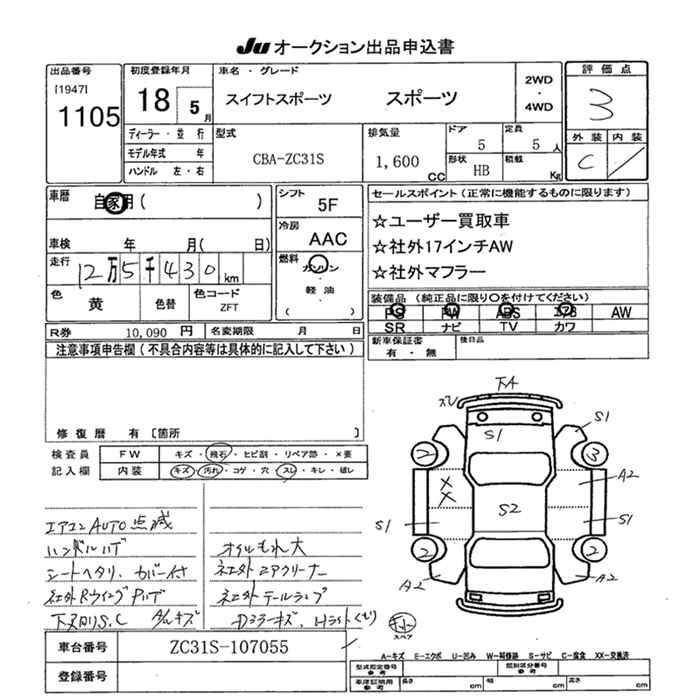 Ju オークション出品申込書
出品番号
[1947]
1105
初度登録年月
18 5月
ディーラー・並 行
モデル年式 年
ハンドル 左・右
車名・グレード
スイフトスポーツ スポーツ
2WD
・
4WD
型式
CBA-ZC31S
排気量
1,600 CC
ドア 5
定員 5人
形状 HB
積載 Kg
評価点
3
外装 内装
C
車歴 自家用( )
車検 年 月( 日)
走行 12万5千430 km
色 黄 色替
色コード ZFT
シフト 5F
冷房 AAC
燃料 ガソリン
・
軽 油
( )
セールスポイント(正常に機能するものに限ります)
☆ユーザー買取車
☆社外17インチAW
☆社外マフラー
装備品 (純正品に限り〇を付けてください)
PS PW ABS エアB AW
SR ナビ TV カワ
新車保証書
有・無
後日品
R券 10,090 円 名変期限 月 日
注意事項申告欄(不具合内容等は具体的に記入して下さい)
修復歴 有 〔箇所 〕
検査員
記入欄
FW キズ・飛石・ヒビ割・リペア跡・×要
内装 キズ・汚れ・コゲ・穴・スレ・キレ・破レ
エアコンAUTO点滅
ハンドルハゲ
シートヘタリ、カバー付
社外Rウイング
下廻りS.C
オイルもれ大
社外エアクリーナー
社外テールランプ
Dミラーキズ、Hライトくもり
下A
ズレ
S1
S1
2
3
A2
××
S2
S1
S1
2
2
A2
A2
スペア
A-キズ E-エクボ U-凹み W-補修跡 S-サビ C-腐食 XX-交換済
車台番号 ZC31S-107055
登録番号
型式指定番号
参考
類別区分番号
参考
車庫証明用
参考
長さ cm 幅 cm 高さ cm